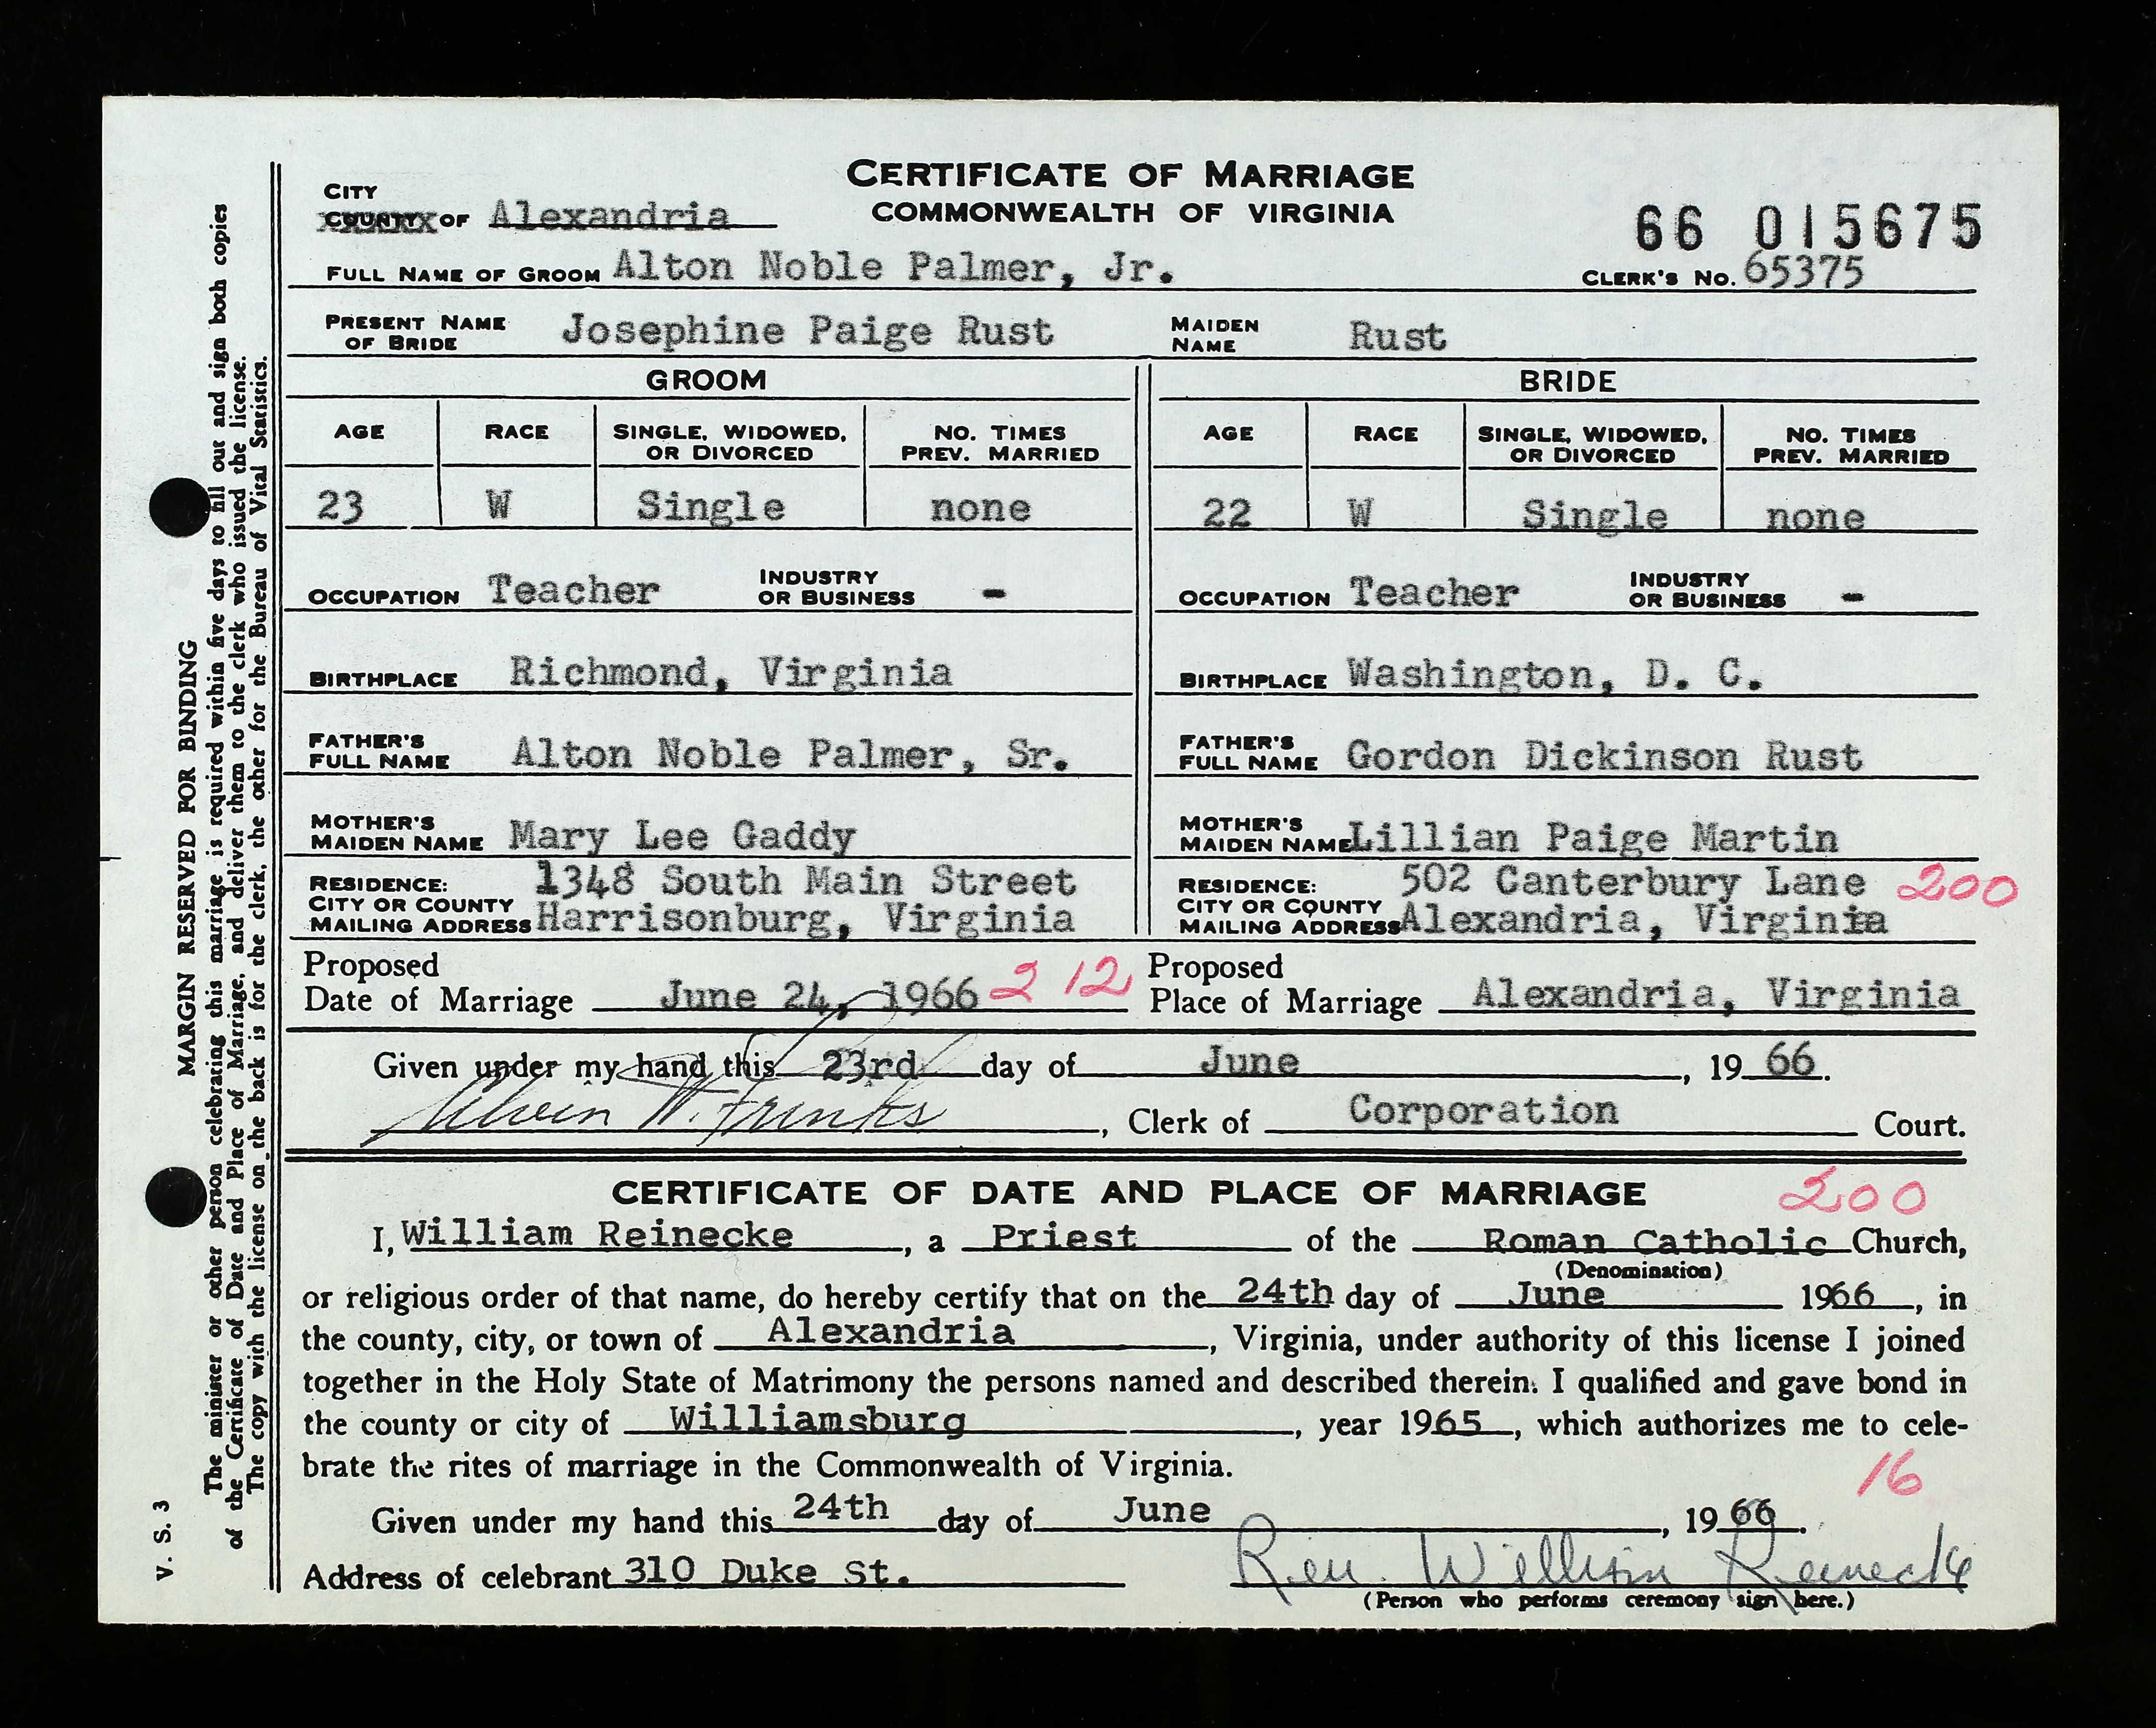 CERTIFICATE OF MARRIAGE
COMMONWEALTH OF VIRGINIA
CITY
COUNTY OF Alexandria
66 015675
FULL NAME OF GROOM Alton Noble Palmer, Jr. CLERK'S No. 65375
PRESENT NAME OF BRIDE Josephine Paige Rust MAIDEN NAME Rust
GROOM BRIDE
AGE RACE SINGLE, WIDOWED, OR DIVORCED NO. TIMES PREV. MARRIED AGE RACE SINGLE, WIDOWED, OR DIVORCED NO. TIMES PREV. MARRIED
23 W Single none 22 W Single none
OCCUPATION Teacher INDUSTRY OR BUSINESS - OCCUPATION Teacher INDUSTRY OR BUSINESS -
BIRTHPLACE Richmond, Virginia BIRTHPLACE Washington, D. C.
FATHER'S FULL NAME Alton Noble Palmer, Sr. FATHER'S FULL NAME Gordon Dickinson Rust
MOTHER'S MAIDEN NAME Mary Lee Gaddy MOTHER'S MAIDEN NAME Lillian Paige Martin
RESIDENCE: CITY OR COUNTY 1348 South Main Street RESIDENCE: CITY OR COUNTY 502 Canterbury Lane 200
MAILING ADDRESS Harrisonburg, Virginia MAILING ADDRESS Alexandria, Virginia
Proposed Date of Marriage June 24, 1966 2 12 Proposed Place of Marriage Alexandria, Virginia
Given under my hand this 23rd day of June, 19 66.
Alvin W. Frinks, Clerk of Corporation Court.
CERTIFICATE OF DATE AND PLACE OF MARRIAGE 200
I, William Reinecke, a Priest of the Roman Catholic Church,
(Denomination)
or religious order of that name, do hereby certify that on the 24th day of June 1966, in
the county, city, or town of Alexandria, Virginia, under authority of this license I joined
together in the Holy State of Matrimony the persons named and described therein. I qualified and gave bond in
the county or city of Williamsburg, year 1965, which authorizes me to cele-
brate the rites of marriage in the Commonwealth of Virginia.
16
Given under my hand this 24th day of June, 19 66.
Address of celebrant 310 Duke St. Rev. William Reinecke
(Person who performs ceremony sign here.)
MARGIN RESERVED FOR BINDING
The minister or other person celebrating this marriage is required within five days to fill out and sign both copies
of the Certificate of Date and Place of Marriage, and deliver them to the clerk who issued the license.
The copy with the license on the back is for the clerk, the other for the Bureau of Vital Statistics.
V. S. 3